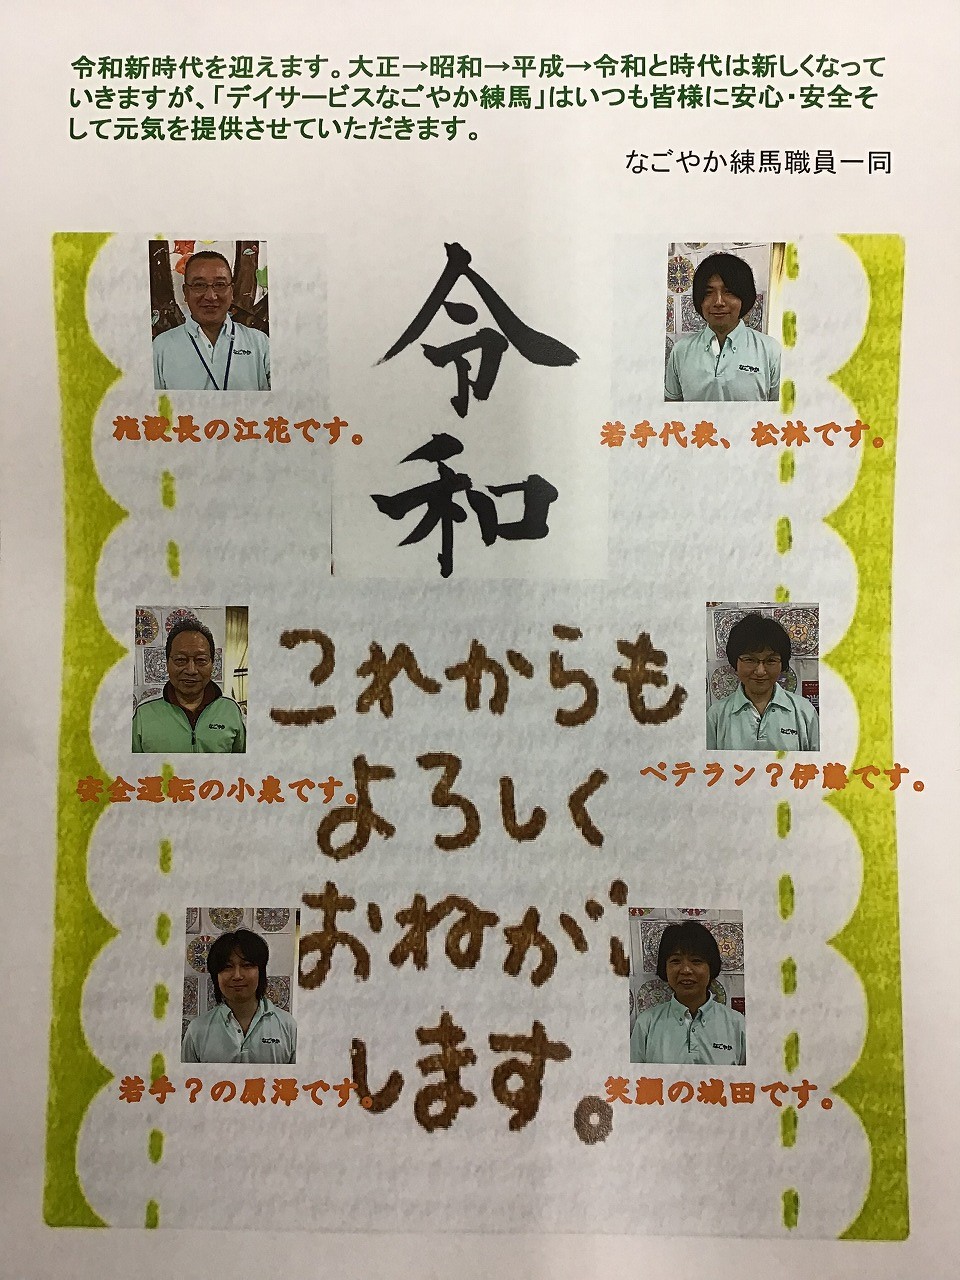 令和新時代を迎えます。大正→昭和→平成→令和と時代は新しくなって
いきますが、「デイサービスなごやか練馬」はいつも皆様に安心・安全そ
して元気を提供させていただきます。
なごやか練馬職員一同
令
和
なごやか
なごやか
施設長の江花です。
若手代表、松林です。
これからも
なごやか
なごやか
安全運転の小泉です。
ベテラン？伊藤です。
よろしく
おねがい
なごやか
なごやか
します。
若手？の原澤です。
笑顔の城田です。